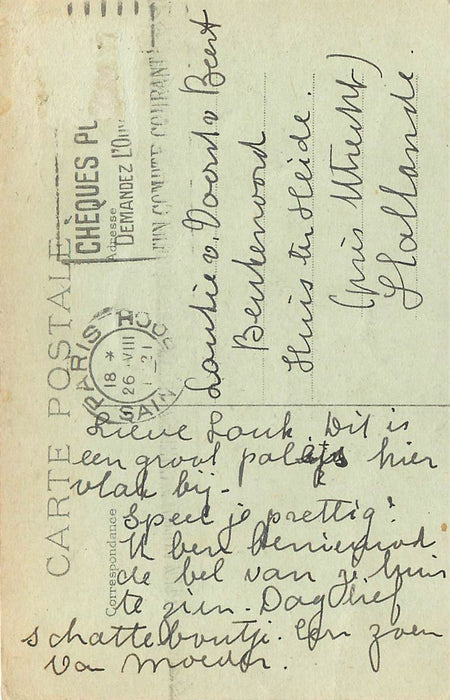 CARTE POSTALE
Correspondance
Adresse
CHÈQUES P
DEMANDEZ L'OU
UN COMPTE COURANT
PARIS
18 *
26 VIII
Loukie v. Voorst v. Beest
Beukenoord
Huis ter Heide.
(près Utrecht)
Hollande.
Lieve Louk. Dit is
een groot paleis hier
vlak bij.
Speel je prettig?
Ik ben benieuwd
de bel van je huis
te zien. Dag lief
schatteboutje. Een zoen
van Moeder.